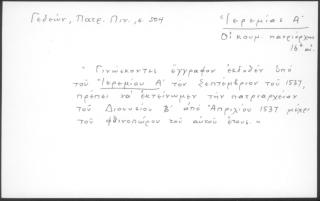 Γεδεών, Πατρ. Πιν., σ. 504
Ἱερεμίας Α΄
Οἰκουμ. πατριάρχης
16ος αἰ.
" Γινώσκοντες ἔγγραφον ἐκδοθὲν ὑπὸ
τοῦ Ἱερεμίου Α΄ τὸν Σεπτέμβριον τοῦ 1537,
πρέπει νὰ ἐκτείνωμεν τὴν πατριαρχείαν
τοῦ Διονυσίου Β΄ ἀπὸ Ἀπριλίου 1537 μέχρι
τοῦ φθινοπώρου τοῦ αὐτοῦ ἔτους. "